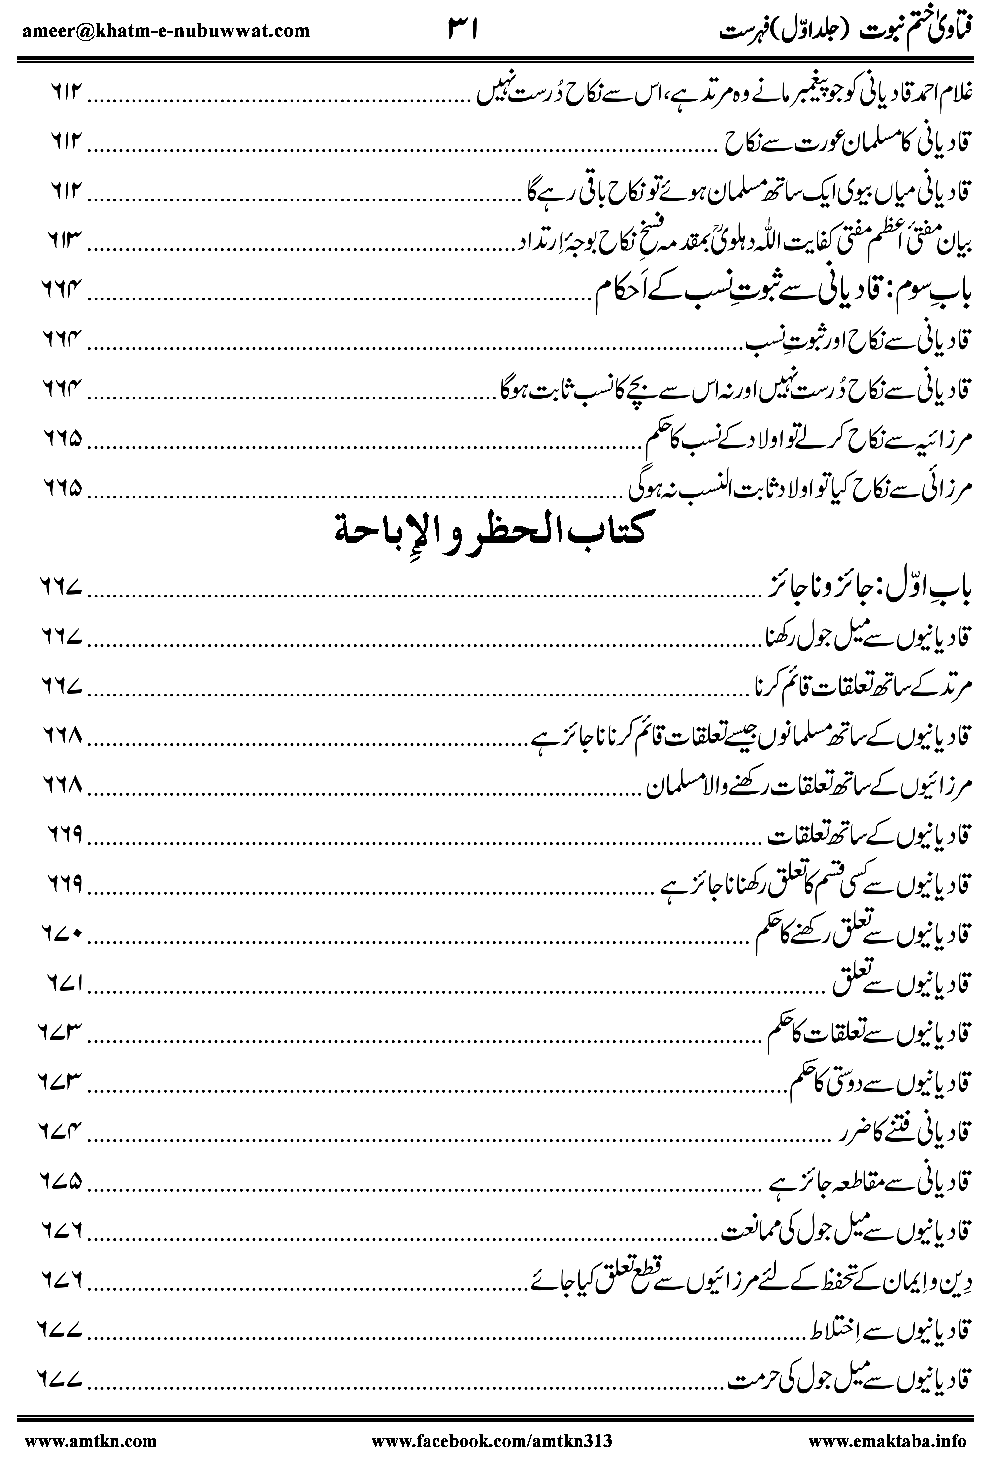 فتاویٰ ختم نبوت (جلد اوّل) فہرست ۳۱ ameer@khatm-e-nubuwwat.com
غلام احمد قادیانی کو جو پیغمبر مانے وہ مرتد ہے، اس سے نکاح دُرست نہیں ........ ۶۱۲
قادیانی کا مسلمان عورت سے نکاح ........ ۶۱۲
قادیانی میاں بیوی ایک ساتھ مسلمان ہوئے تو نکاح باقی رہے گا ........ ۶۱۲
بیان مفتیٔ اعظم مفتی کفایت اللہ دہلویؒ بمقدمہ فسخِ نکاح بوجہٴ اِرتداد ........ ۶۱۳
بابِ سوم: قادیانی سے ثبوتِ نسب کے اَحکام ........ ۶۶۴
قادیانی سے نکاح اور ثبوتِ نسب ........ ۶۶۴
قادیانی سے نکاح دُرست نہیں اور نہ اس سے بچے کا نسب ثابت ہوگا ........ ۶۶۴
مرزائیہ سے نکاح کرلے تو اولاد کے نسب کا حکم ........ ۶۶۵
مرزائی سے نکاح کیا تو اولاد ثابت النسب نہ ہوگی ........ ۶۶۵
كتاب الحظر و الإباحة
بابِ اوّل: جائز و ناجائز ........ ۶۶۷
قادیانیوں سے میل جول رکھنا ........ ۶۶۷
مرتد کے ساتھ تعلقات قائم کرنا ........ ۶۶۷
قادیانیوں کے ساتھ مسلمانوں جیسے تعلقات قائم کرنا ناجائز ہے ........ ۶۶۸
مرزائیوں کے ساتھ تعلقات رکھنے والا مسلمان ........ ۶۶۸
قادیانیوں کے ساتھ تعلقات ........ ۶۶۹
قادیانیوں سے کسی قسم کا تعلق رکھنا ناجائز ہے ........ ۶۶۹
قادیانیوں سے تعلق رکھنے کا حکم ........ ۶۷۰
قادیانیوں سے تعلق ........ ۶۷۱
قادیانیوں سے تعلقات کا حکم ........ ۶۷۳
قادیانیوں سے دوستی کا حکم ........ ۶۷۳
قادیانی فتنے کا ضرر ........ ۶۷۴
قادیانی سے مقاطعہ جائز ہے ........ ۶۷۵
قادیانیوں سے میل جول کی ممانعت ........ ۶۷۶
دِین و اِیمان کے تحفظ کے لئے مرزائیوں سے قطع تعلق کیا جائے ........ ۶۷۶
قادیانیوں سے اِختلاط ........ ۶۷۷
قادیانیوں سے میل جول کی حرمت ........ ۶۷۷
www.amtkn.com www.facebook.com/amtkn313 www.emaktaba.info